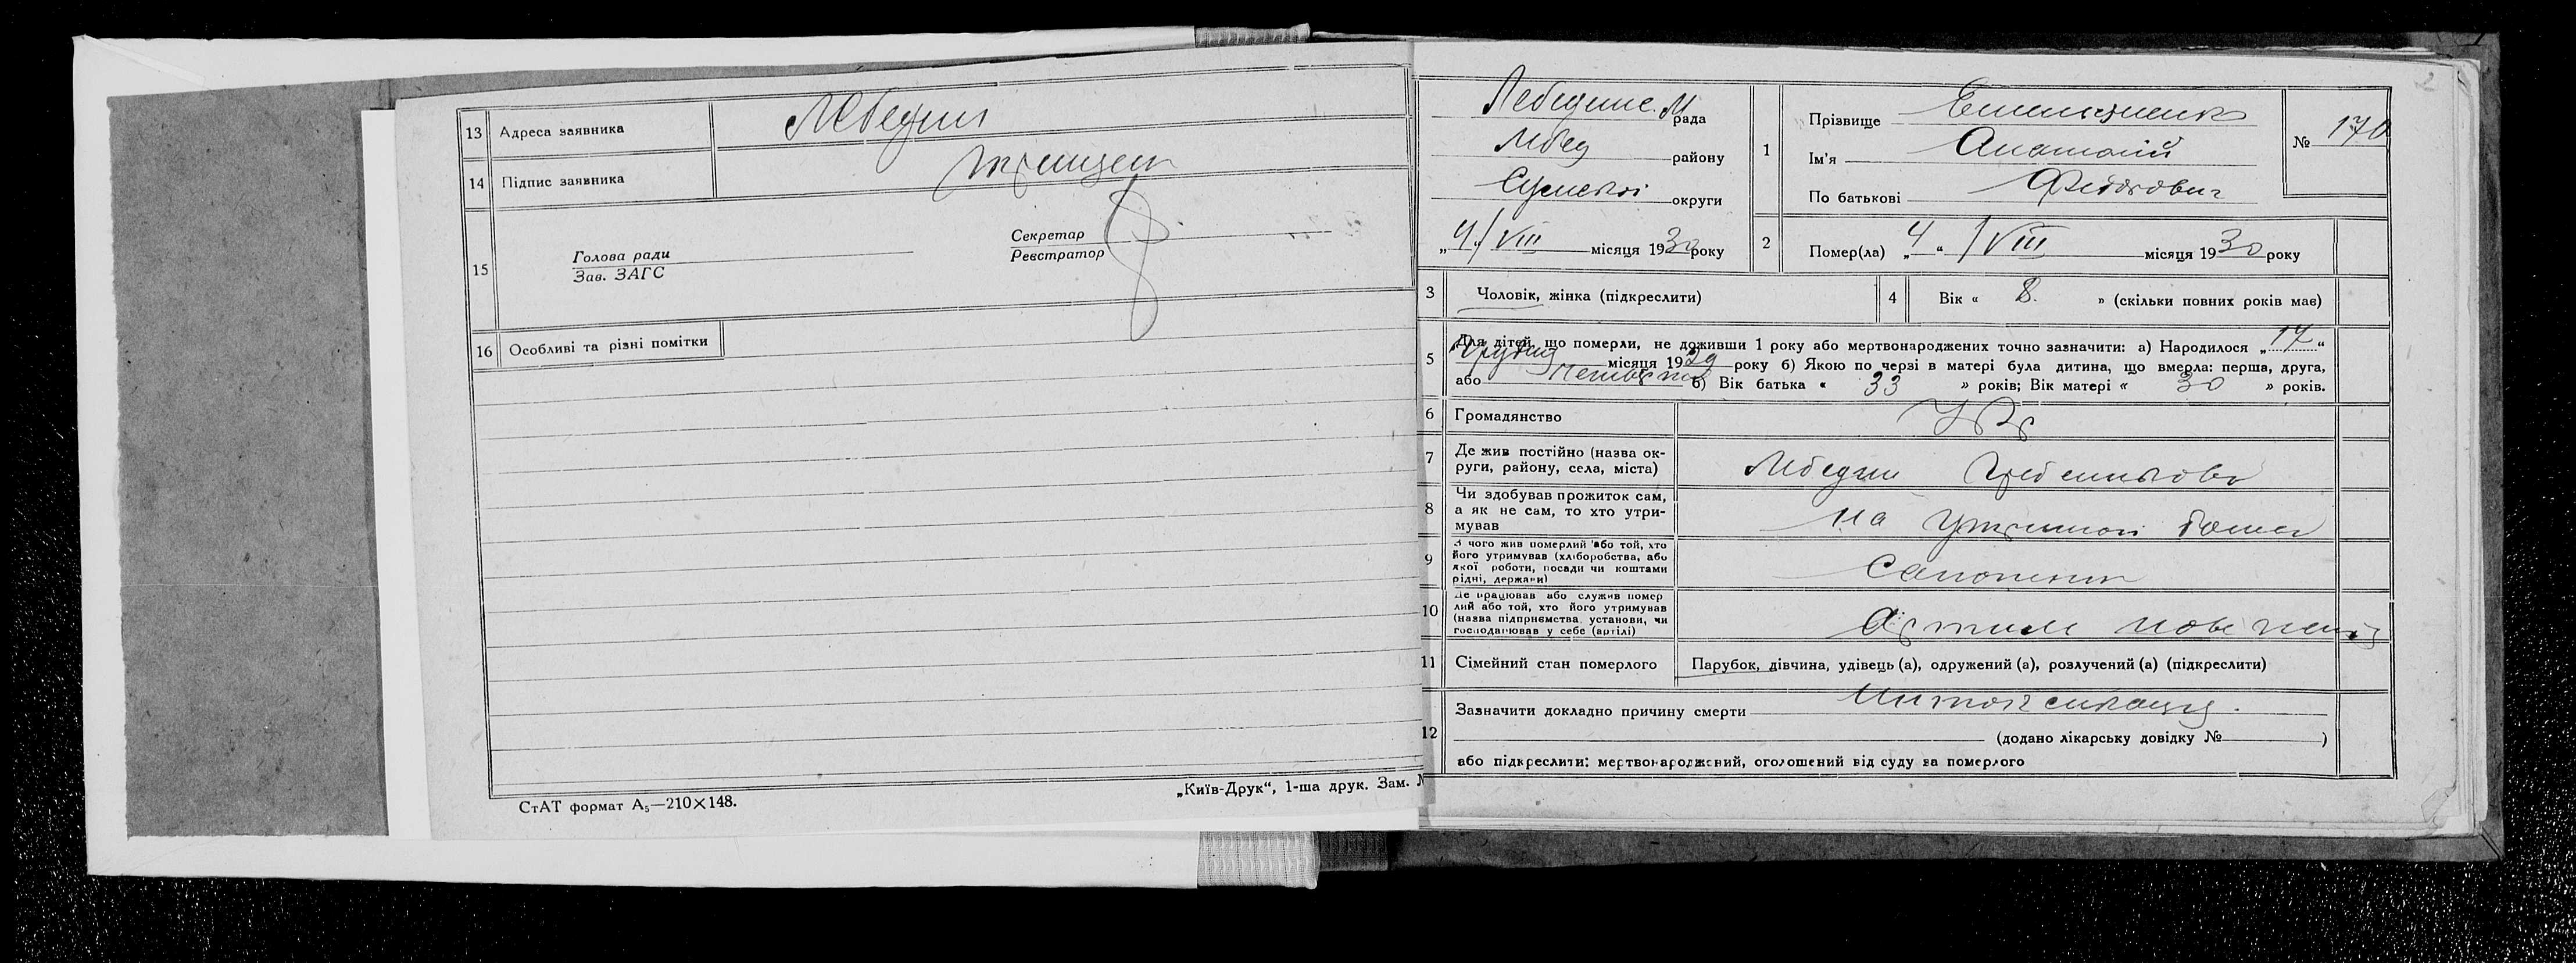 13 Адреса заявника Лебедин
14 Підпис заявника
15 Голова ради
Зав. ЗАГС
Секретар
Реєстратор
16 Особливі та різні помітки
СтАТ формат А₅—210×148.
„Київ-Друк“, 1-ша друк. Зам. №
Лебединс. М рада
Лебед району
Сумської округи
„4“/VIII місяця 1930 року
1 Прізвище Емельяненко
Ім'я Анатолій
По батькові Федорович
№ 170
2 Помер(ла) „4“ /VIII місяця 1930 року
3 Чоловік, жінка (підкреслити)
4 Вік « 8. » (скільки повних років має)
5 Для дітей, що померли, не доживши 1 року або мертвонароджених точно зазначити: а) Народилося „17“
грудня місяця 1929 року б) Якою по черзі в матері була дитина, що вмерла: перша, друга,
або четверта в) Вік батька « 33 » років; Вік матері « 30 » років.
6 Громадянство
7 Де жив постійно (назва ок-
руги, району, села, міста) Лебедин
8 Чи здобував прожиток сам,
а як не сам, то хто утри-
мував на утриманні
9 З чого жив померлий або той, хто
його утримував (хліборобства, або
якої роботи, посади чи коштами
рідні, держави)
10 Де працював або служив помер
лий або той, хто його утримував
(назва підприємства, установи, чи
господарював у себе (артілі)
11 Сімейний стан померлого Парубок, дівчина, удівець (а), одружений (а), розлучений (а) (підкреслити)
12 Зазначити докладно причину смерти Интоксикация.
(додано лікарську довідку № )
або підкреслити: мертвонароджений, оголошений від суду за померлого